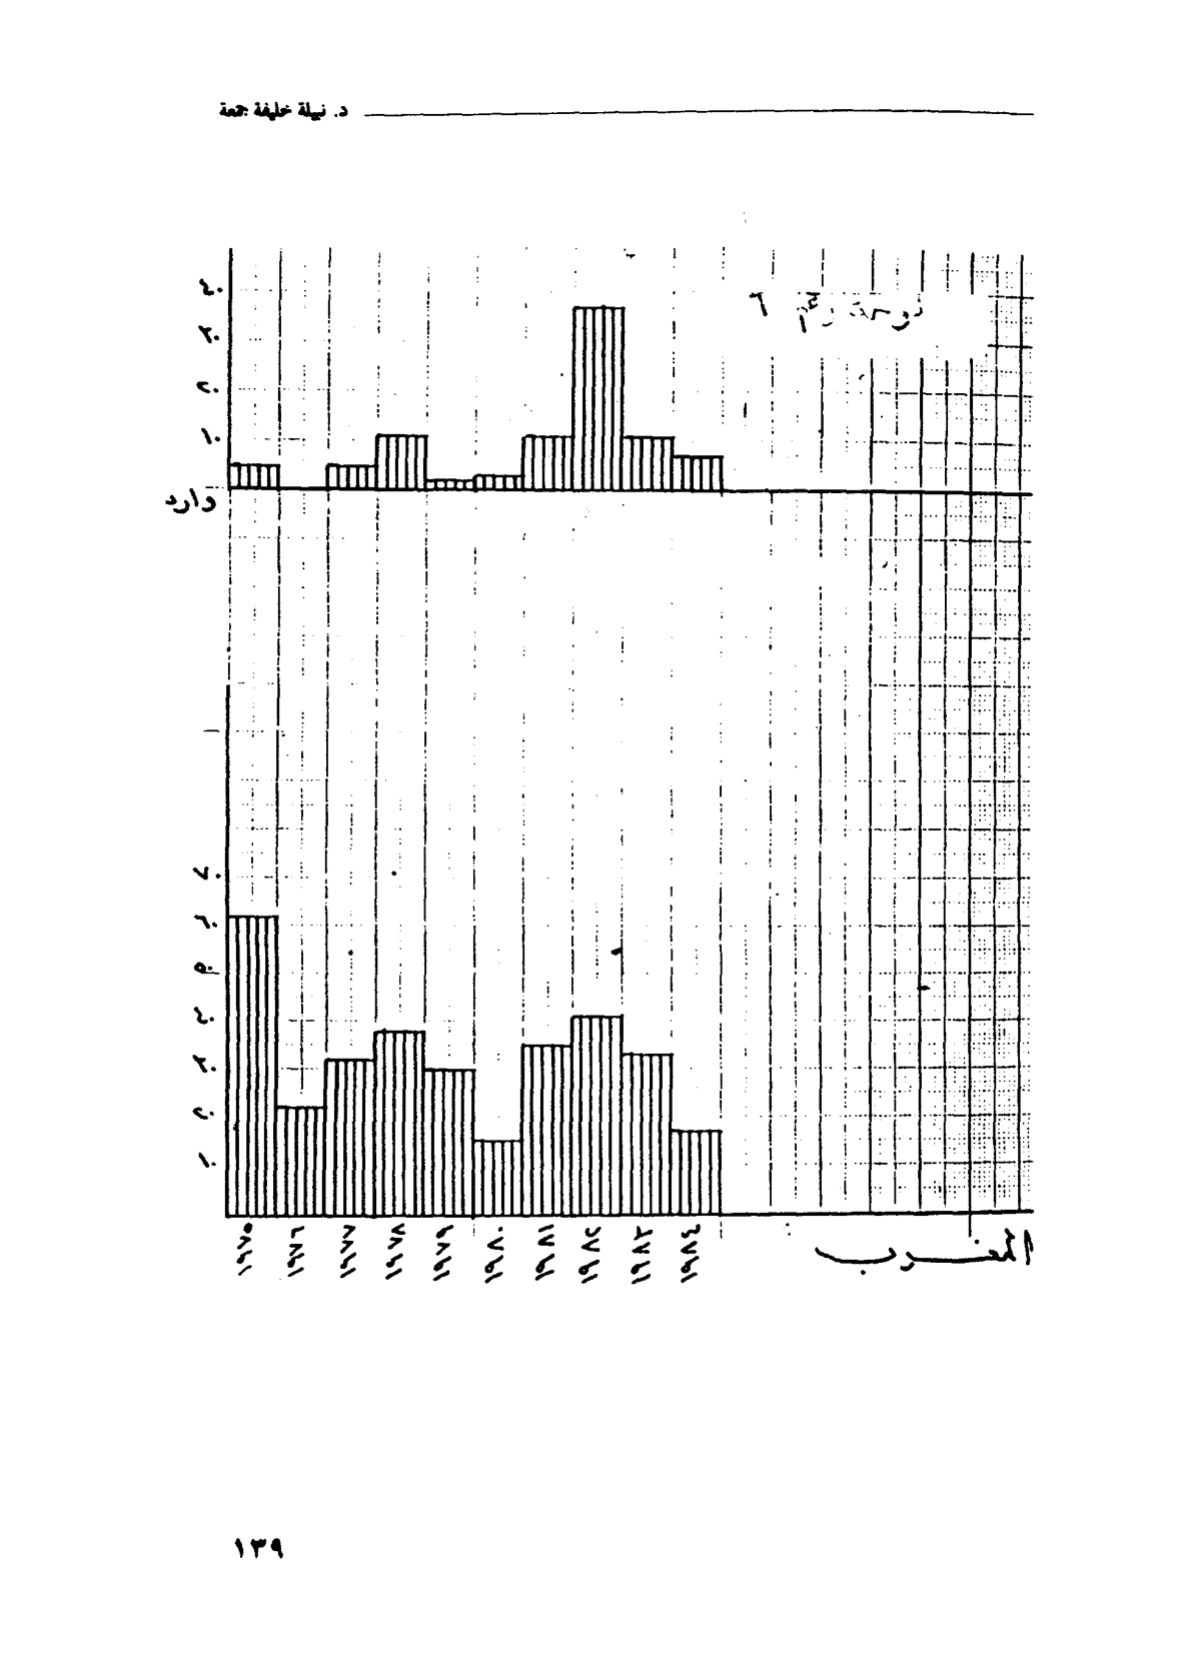 د. نبيلة خليفة جمعة
لوحة رقم ٦
٤٠
٣٠
٢٠
١٠
وارد
٧٠
٦٠
٥٠
٤٠
٣٠
٢٠
١٠
١٩٧٥ ١٩٧٦ ١٩٧٧ ١٩٧٨ ١٩٧٩ ١٩٨٠ ١٩٨١ ١٩٨٢ ١٩٨٣ ١٩٨٤
المغرب
١٣٩